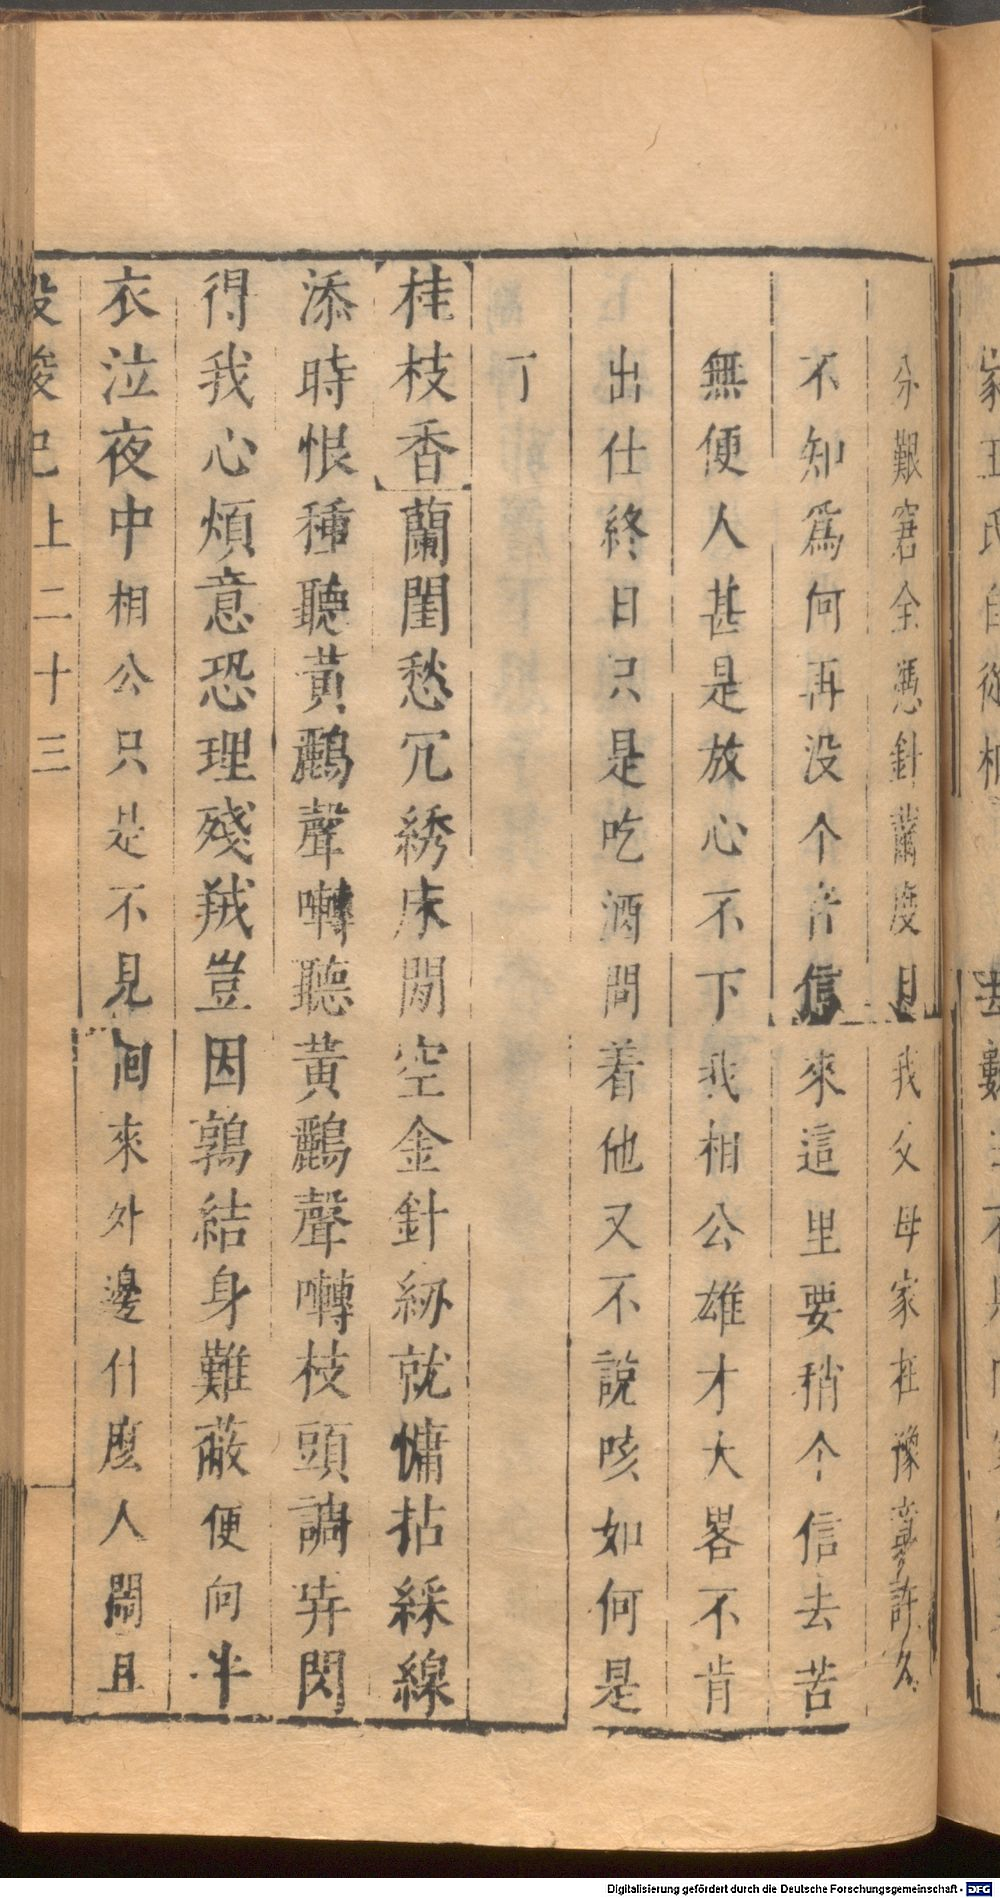 分艱窘全憑針黹度日我父母家在豫章許久
不知爲何再没个音信來這里要稍个信去苦
無便人甚是放心不下我相公雄才大畧不肯
出仕終日只是吃酒問着他又不說咳如何是
了
桂枝香蘭閨愁冗綉床閒空金針紉就慵拈綵線
添時恨種聽黃鸝聲囀聽黃鸝聲囀枝頭調弄閃
得我心煩意恐理殘羢豈因鶉結身難蔽便向半
衣泣夜中相公只是不見回來外邊什麽人鬧且
投梭记上二十三
Digitalisierung gefördert durch die Deutsche Forschungsgemeinschaft - DFG